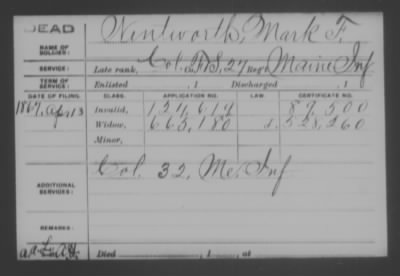 DEAD
NAME OF SOLDIER: Wentworth, Mark F.
SERVICE: Late rank, Col. F&S, 27 Reg't Maine Inf
TERM OF SERVICE: Enlisted , 1 Discharged , 1
DATE OF FILING. CLASS. APPLICATION NO. LAW. CERTIFICATE NO.
1867, Apr 13 Invalid, 124,614 87,500
Widow, 663,180 528,260
Minor,
ADDITIONAL SERVICES: Col. 32, Me. Inf
REMARKS:
Died , 1 , at